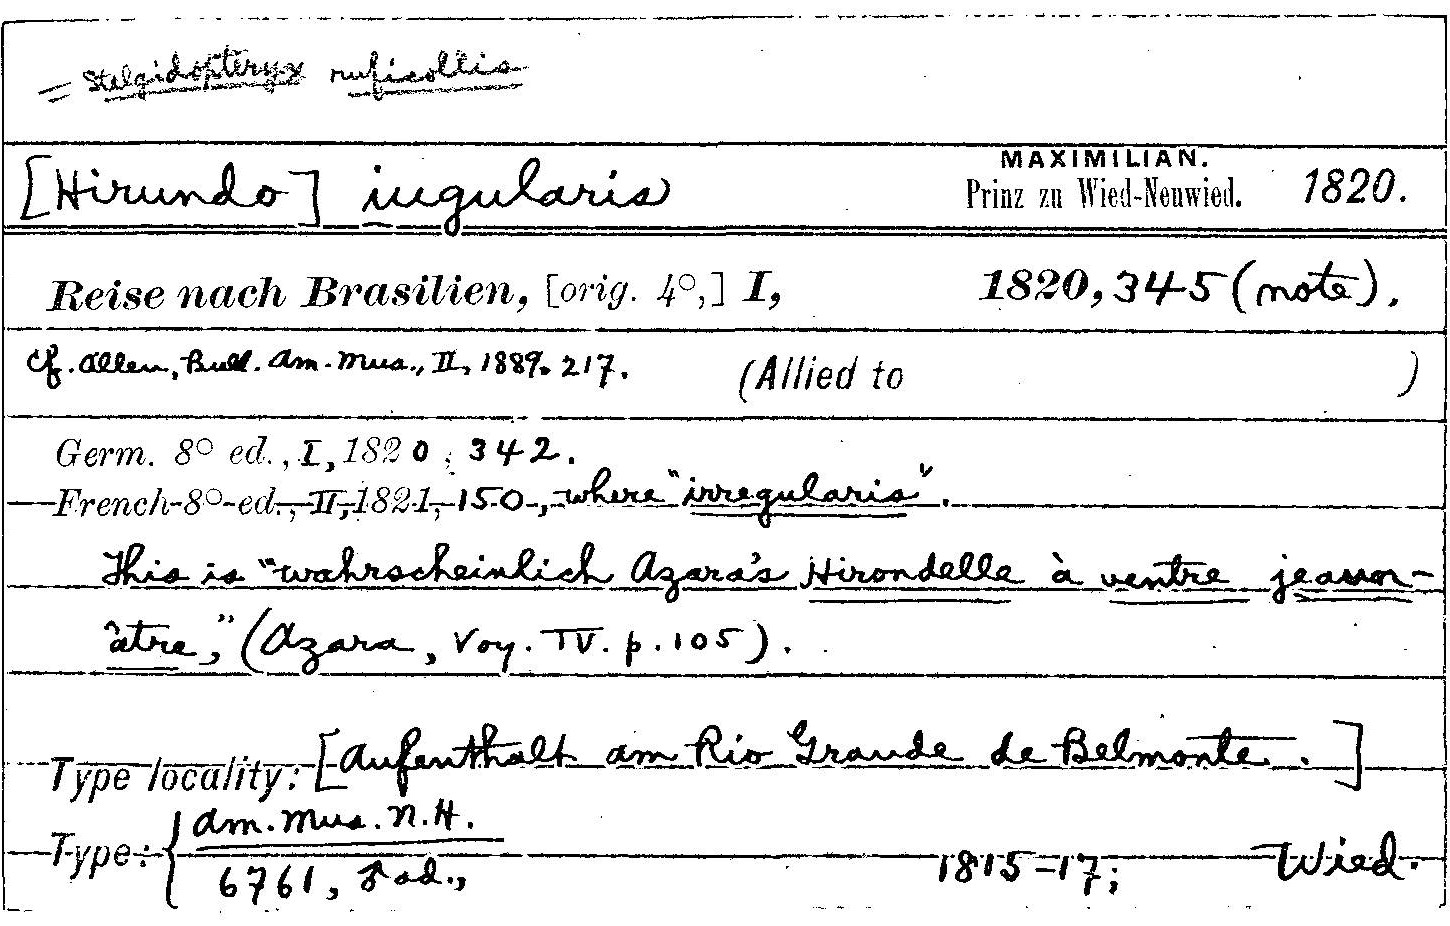 = Stelgidopteryx ruficollis
MAXIMILIAN.
[Hirundo] iugularis Prinz zu Wied-Neuwied. 1820.
Reise nach Brasilien, [orig. 4°,] I, 1820, 345 (note).
Cf. Allen, Bull. Am. Mus., II, 1889. 217. (Allied to )
Germ. 8° ed., I, 1820, 342.
French 8° ed., II, 1821, 150, where "irregularis".
This is "wahrscheinlich Azara's Hirondelle à ventre jeaun-
âtre," (Azara, Voy. IV. p. 105).
Type locality: [Aufenthalt am Rio Grande de Belmonte.]
Type: { Am. Mus. N. H.
6761, ♂ ad., 1815-17; Wied.